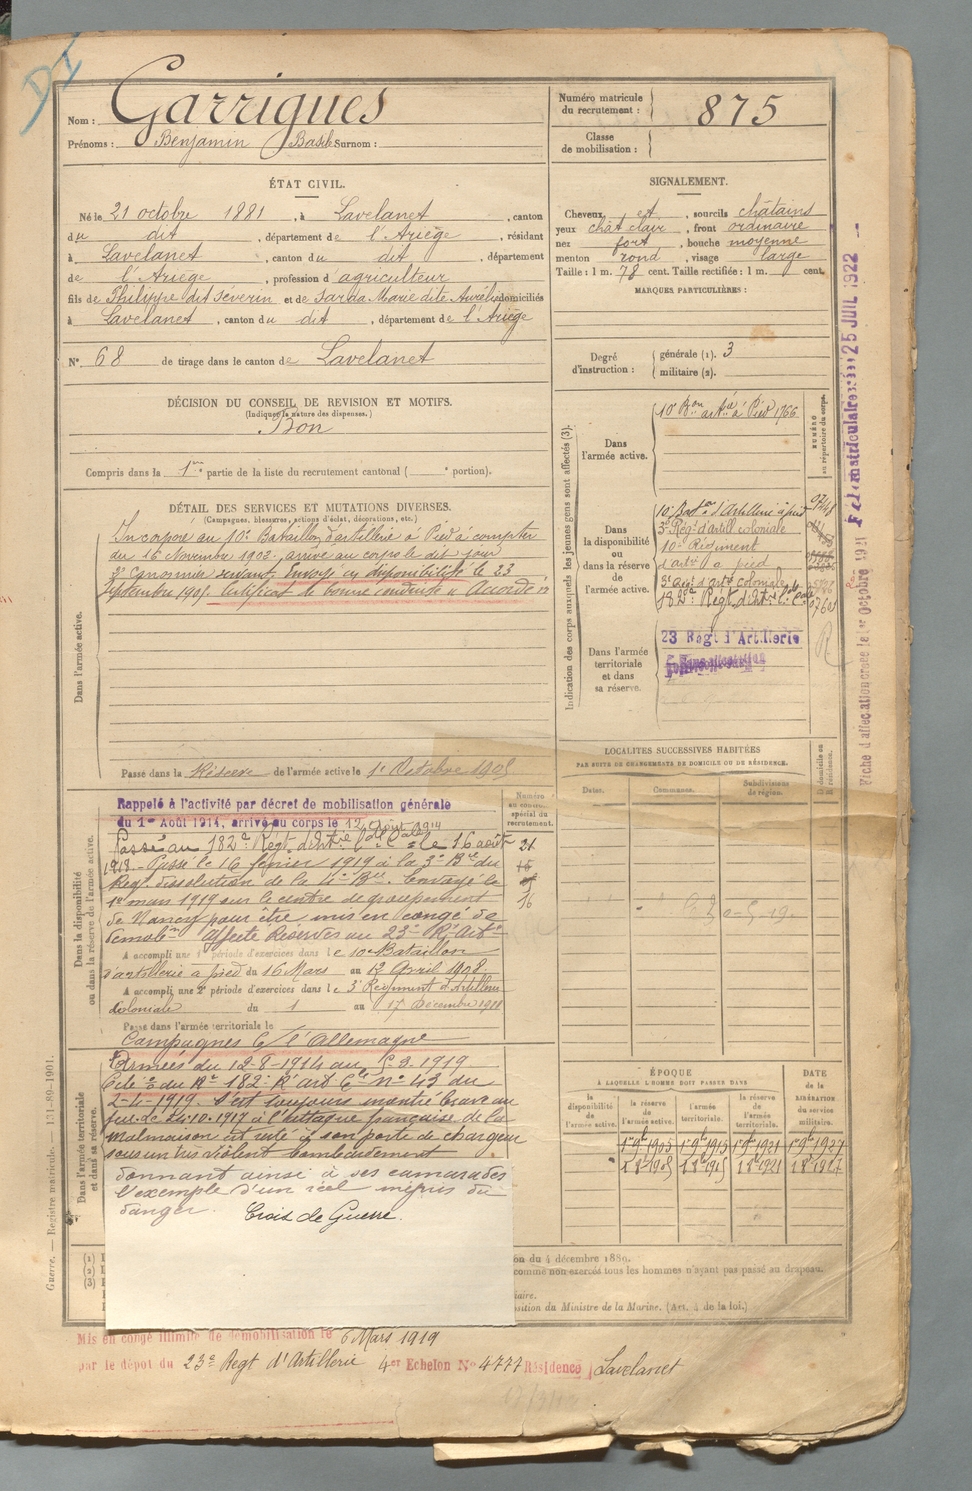 DI
Nom : Garrigues
Prénoms : Benjamin Basile Surnom :
Numéro matricule du recrutement : 875
Classe de mobilisation :
ÉTAT CIVIL.
Né le 21 octobre 1881, à Lavelanet, canton
du dit, département de l'Ariège, résidant
à Lavelanet, canton du dit, département
de l'Ariège, profession d'agriculteur
fils de Philippe dit Séverin et de Sarda Marie dite Aurélie domiciliés
à Lavelanet, canton du dit, département de l'Ariège
N° 68 de tirage dans le canton de Lavelanet
SIGNALEMENT.
Cheveux et, sourcils châtains
yeux chât clair, front ordinaire
nez fort, bouche moyenne
menton rond, visage large
Taille : 1 m. 78 cent. Taille rectifiée : 1 m. cent.
MARQUES PARTICULIÈRES :
Degré d'instruction : générale (1). 3
militaire (2).
DÉCISION DU CONSEIL DE REVISION ET MOTIFS.
(Indiquer la nature des dispenses.)
Bon
Compris dans la 1re partie de la liste du recrutement cantonal ( portion).
DÉTAIL DES SERVICES ET MUTATIONS DIVERSES.
(Campagnes, blessures, actions d'éclat, décorations, etc.)
Dans l'armée active.
Incorporé au 10e Bataillon d'artillerie à Pied à compter
du 16 Novembre 1902. arrivé au corps le dit jour
2e Canonnier servant. Envoyé en disponibilité le 23
Septembre 1905. Certificat de bonne conduite "Accordé"
Passé dans la Réserve de l'armée active le 1er Octobre 1905
Indication des corps auxquels les jeunes gens sont affectés (3).
NUMÉRO au répertoire du corps.
Dans l'armée active.
10e Bon artie à Pied 1766
Dans la disponibilité ou dans la réserve de l'armée active.
10e Baton d'Artillerie à pied
3e Régt d'artill. coloniale
10e Régiment
d'artie à pied
3e d'art coloniale
182e Régt d'Artie
Dans l'armée territoriale et dans sa réserve.
23 Régt d'Artillerie
Sans affectation
Fiche d'affectation créée le 1er Octobre 1921
25 JUIL 1922
LOCALITÉS SUCCESSIVES HABITÉES
PAR SUITE DE CHANGEMENTS DE DOMICILE OU DE RÉSIDENCE.
Dates.
Communes.
Subdivisions de région.
D. domicile ou R. résidence.
Numéro au contrôle spécial du recrutement.
21
16
Dans la disponibilité ou dans la réserve de l'armée active.
Rappelé à l'activité par décret de mobilisation générale
du 1er Août 1914, arrivé au corps le 12 Août 1914
Passé au 182e Régt d'Artie le 16 août
1918. Passé le 16 février 1919 à la 3e Bie du
Régt dissolution de la 4e Bie. Envoyé le
1er mars 1919 sur le centre de groupement
de Nancy pour être mis en congé de
démobon Affecté Réserves au 23e Rt Artie
A accompli une 1re période d'exercices dans le 10e Bataillon
d'artillerie à pied du 16 Mars au 12 Avril 1908.
A accompli une 2e période d'exercices dans le 3e Régiment d'Artillerie
Coloniale du 1 au 17 Décembre 1911
Passé dans l'armée territoriale le
Campagnes C/ l'Allemagne
Dans l'armée territoriale et dans sa réserve.
Armées du 12-8-1914 au 5-3-1919
Cité à o du Rt 182e R art Cle n° 43 du
2-4-1919. S'est toujours montré brave au
feu. Le 24.10.1917 à l'attaque française de la
Malmaison est resté à son poste de chargeur
sous un très violent bombardement
donnant ainsi à ses camarades
l'exemple d'un réel mépris du
danger. Croix de Guerre.
ÉPOQUE
À LAQUELLE L'HOMME DOIT PASSER DANS
la disponibilité de l'armée active.
la réserve de l'armée active.
l'armée territoriale.
la réserve de l'armée territoriale.
DATE de la LIBÉRATION du service militaire.
1er 8bre 1905
1er 8bre 1915
1er 8bre 1921
1er 8bre 1927
(1)
(2)
(3)
du 4 décembre 1889.
comme non exercés tous les hommes n'ayant pas passé au drapeau.
Ministre de la Marine. (Art. 4 de la loi.)
Guerre. — Registre matricule. — 131-89-1901.
Mis en congé illimité de démobilisation le 6 Mars 1919
par le dépôt du 23e Régt d'Artillerie 4er Echelon N° 4777 Résidence Lavelanet